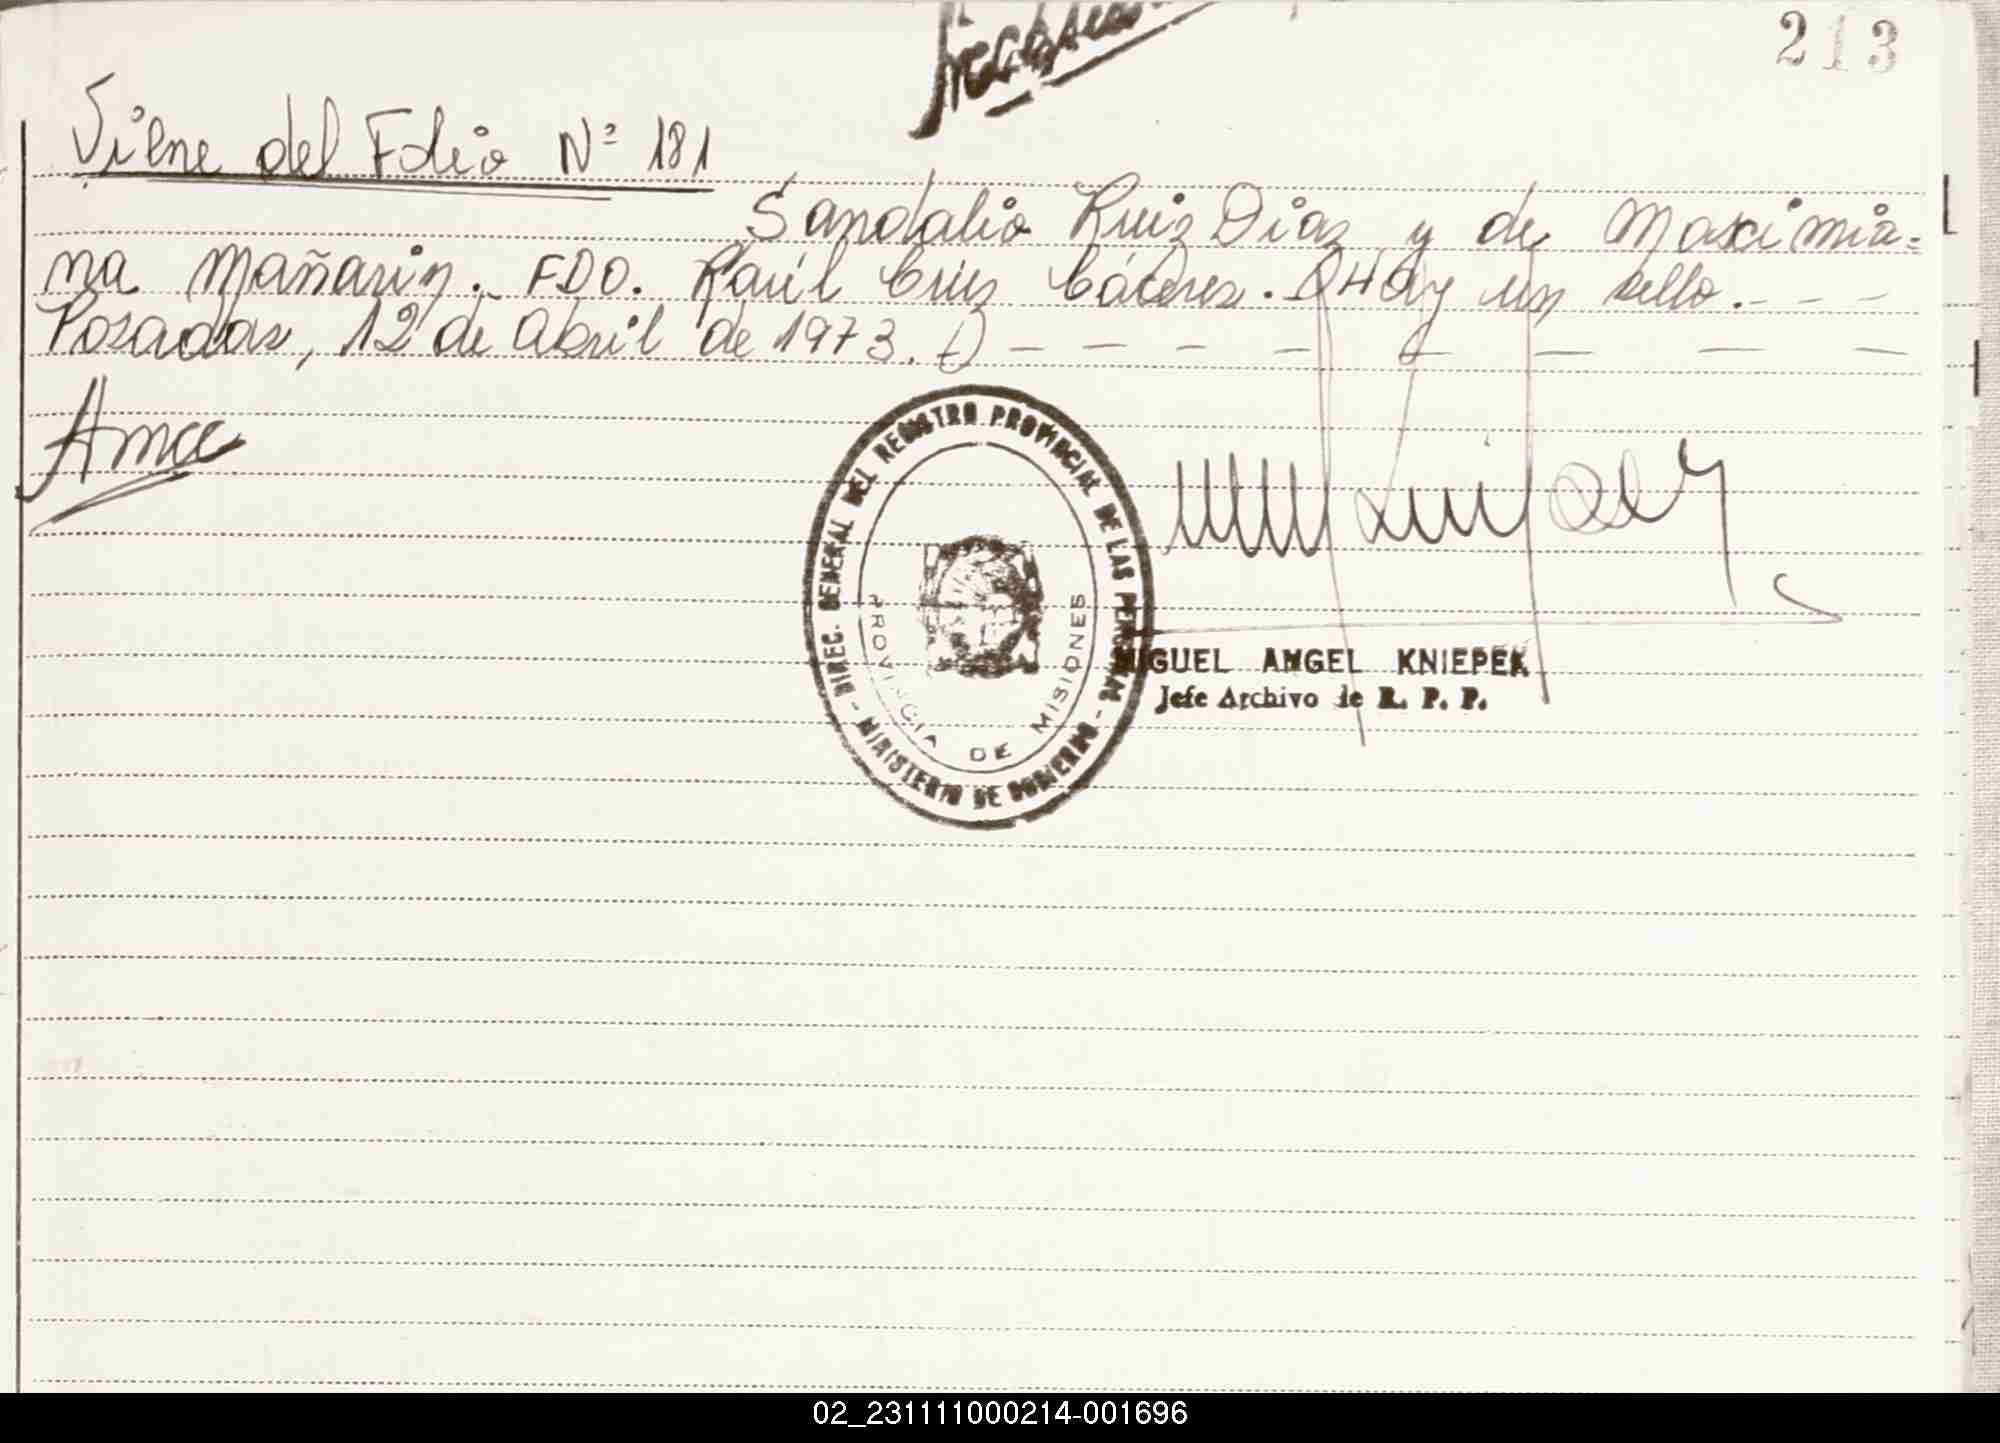 213
Viene del Folio Nº 181
Sandalio Ruiz Diaz y de Maximia=
na Mañarin. FDO. Raúl Cruz Cáceres. Hay un sello. - - -
Posadas, 12 de Abril de 1973. - - - - - - - -
DIREC. GENERAL DEL REGISTRO PROVINCIAL DE LAS PERSONAS - MINISTERIO DE GOBIERNO -
PROVINCIA DE MISIONES
MIGUEL ANGEL KNIEPER
Jefe Archivo de R. P. P.
02_231111000214-001696